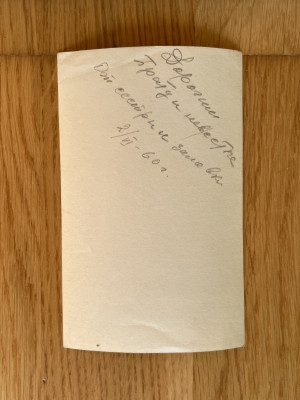 Дорогим
брату и невестке
От сестры и золовки
2/VI-60г.